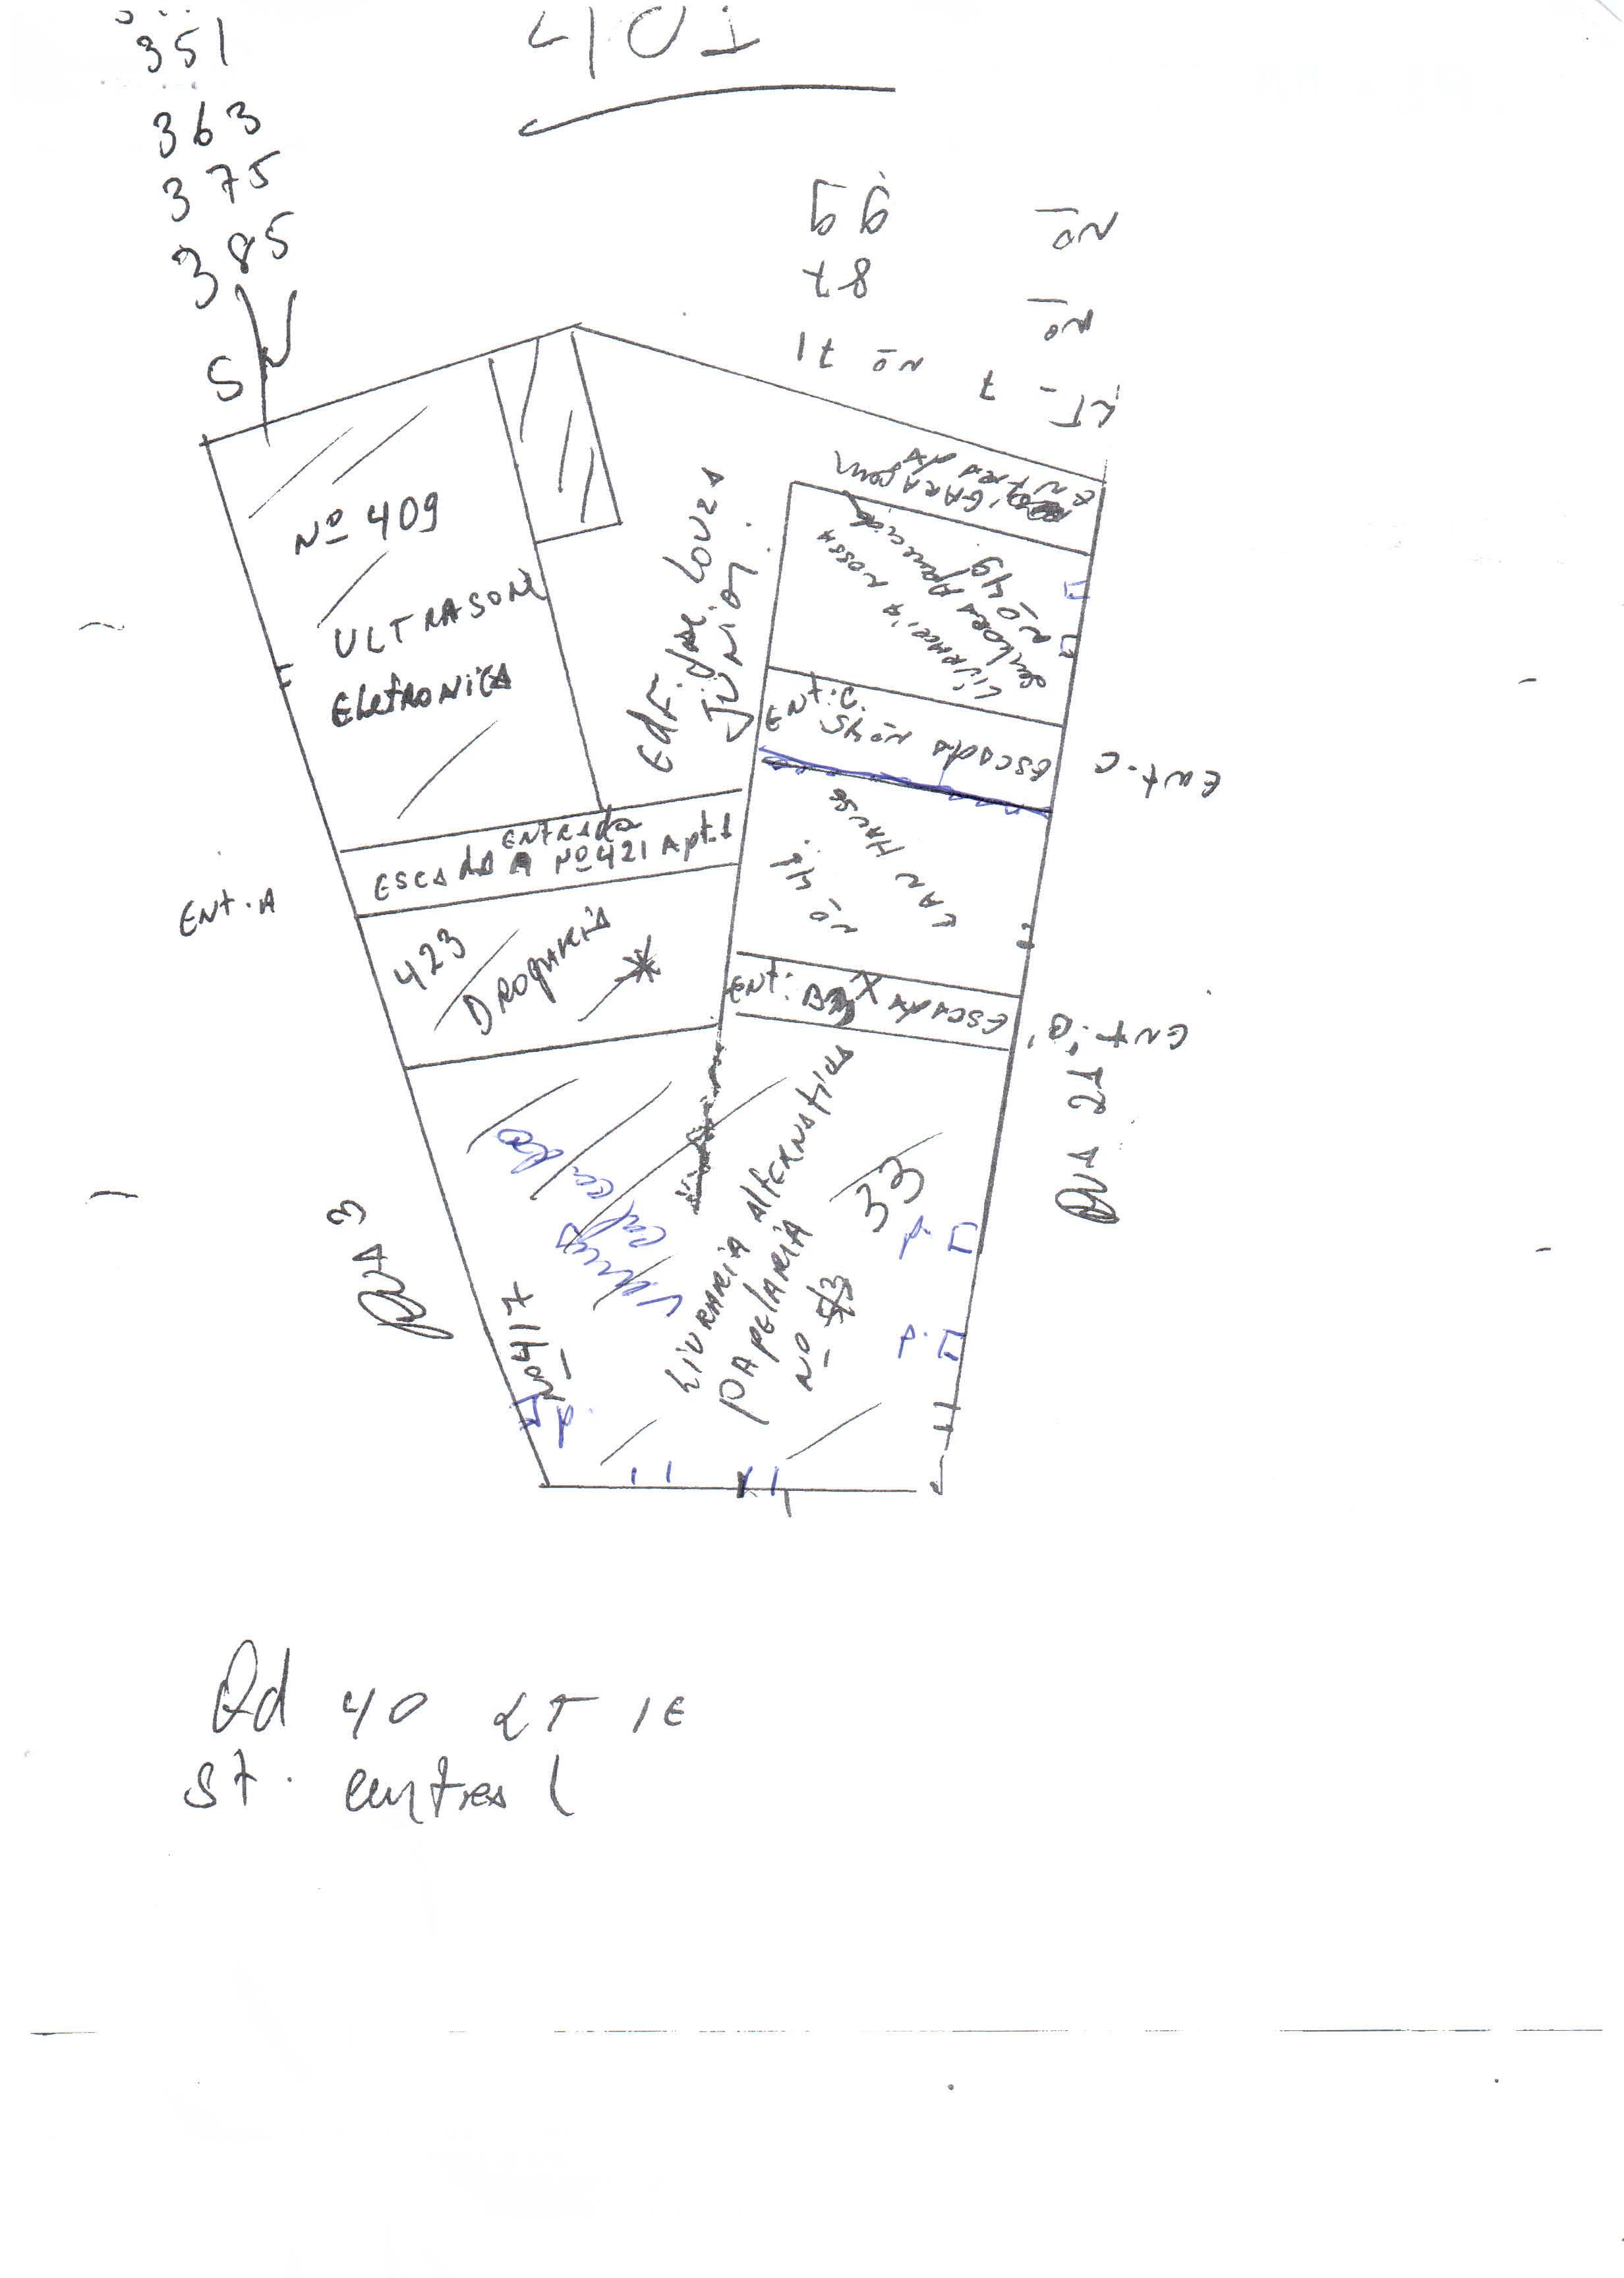 351
401
363
375
385
S
99
Nº
87
Nº
Nº 71
LT - 7
Nº 409
ULTRASOM
EletRONiCA
EdF. José Louza
JÚNiOR.
ENtRAdA
GARAgem
LiVRARiA NOSSA
Senhora Aparecida
Nº 49
ENt. C.
Nº 45
Escada
Ent. C
LAN HAUSE
Nº 41
ENtRAdA
ESCAdA A Nº 421 Apt. 1
ENt. A
423
DROgARiA
ENt: B
EscAdA
Ent. B
RUA 21
RUA 3
LiVRARiA AltERNAtiVA
PApELARiA
Nº
33
Nº 417
p.
p.
p.
Qd 40 LT 1E
St. central